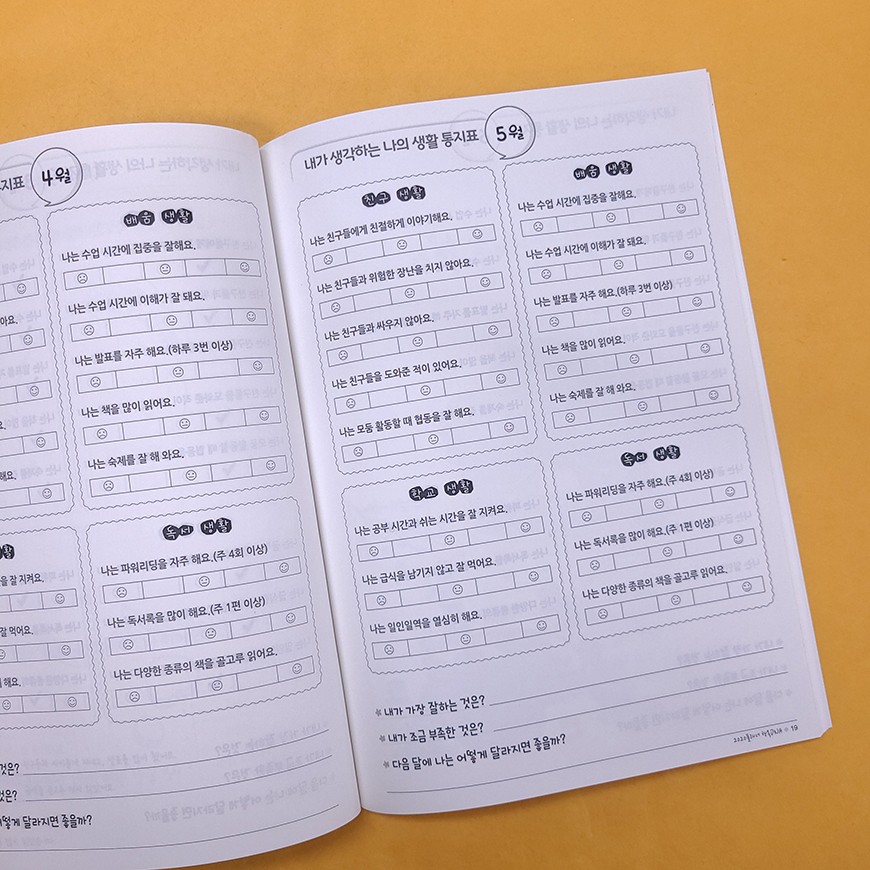 지표
4월
배움 생활
나는 수업 시간에 집중을 잘해요.
나는 수업 시간에 이해가 잘 돼요.
나는 발표를 자주 해요.(하루 3번 이상)
나는 책을 많이 읽어요.
나는 숙제를 잘 해 와요.
아요.
요.
해요.
독서 생활
나는 파워리딩을 자주 해요.(주 4회 이상)
나는 독서록을 많이 해요.(주 1편 이상)
나는 다양한 종류의 책을 골고루 읽어요.
활
을 잘 지켜요.
잘 먹어요.
해요.
것은?
것은?
떻게 달라지면 좋을까?
내가 생각하는 나의 생활 통지표
5월
친구 생활
나는 친구들에게 친절하게 이야기해요.
나는 친구들과 위험한 장난을 치지 않아요.
나는 친구들과 싸우지 않아요.
나는 친구들을 도와준 적이 있어요.
나는 모둠 활동할 때 협동을 잘 해요.
배움 생활
나는 수업 시간에 집중을 잘해요.
나는 수업 시간에 이해가 잘 돼요.
나는 발표를 자주 해요.(하루 3번 이상)
나는 책을 많이 읽어요.
나는 숙제를 잘 해 와요.
학교 생활
나는 공부 시간과 쉬는 시간을 잘 지켜요.
나는 급식을 남기지 않고 잘 먹어요.
나는 일인일역을 열심히 해요.
독서 생활
나는 파워리딩을 자주 해요.(주 4회 이상)
나는 독서록을 많이 해요.(주 1편 이상)
나는 다양한 종류의 책을 골고루 읽어요.
내가 가장 잘하는 것은?
내가 조금 부족한 것은?
다음 달에 나는 어떻게 달라지면 좋을까?
19